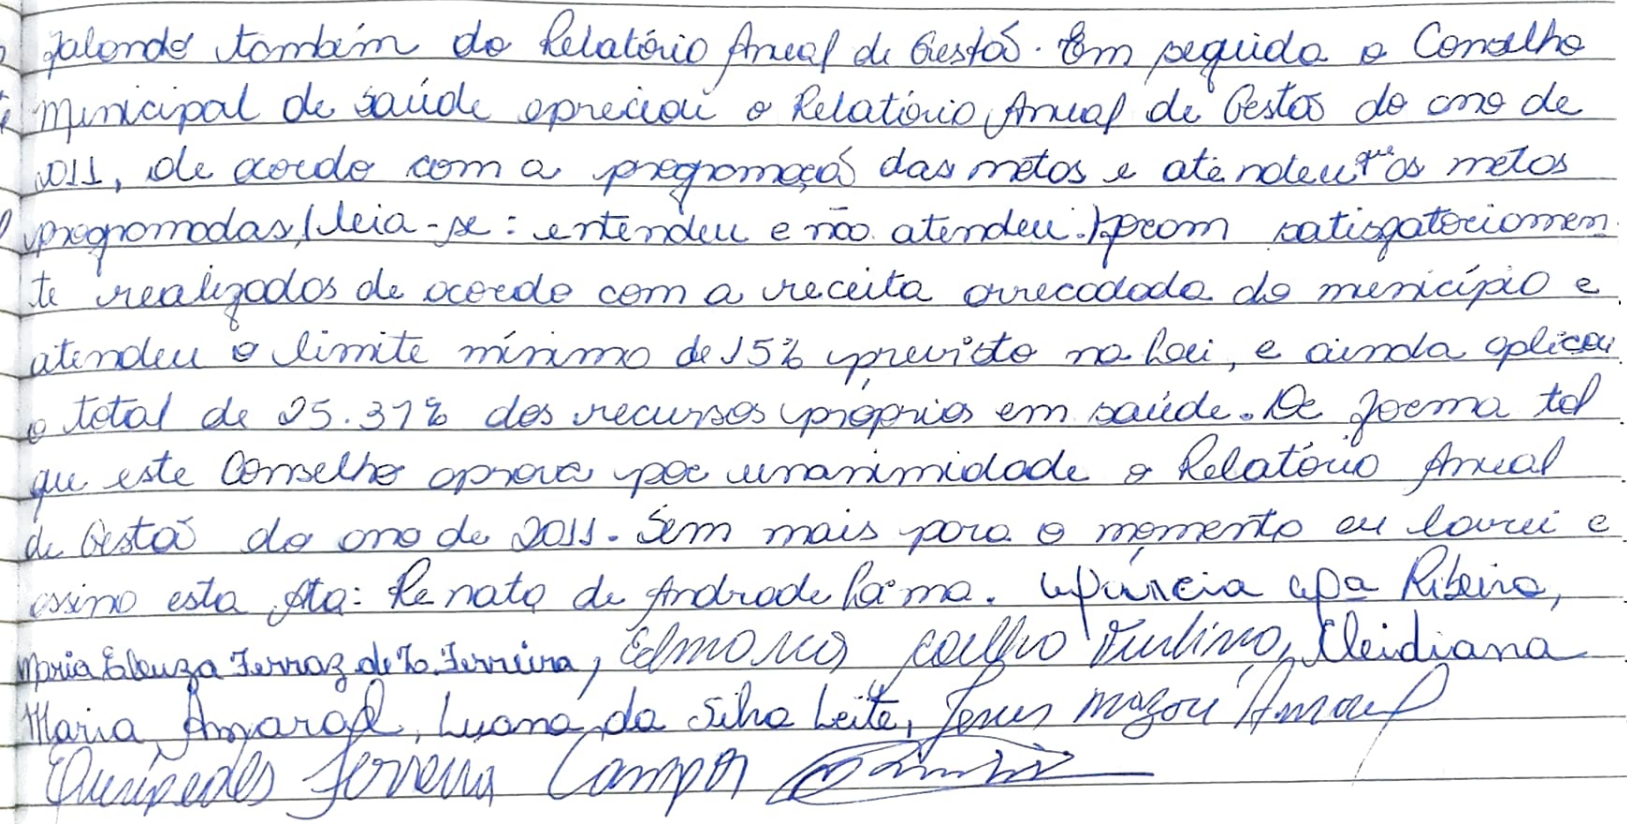 falando também do Relatório Anual de Gestão. Em seguida o Conselho
Municipal de Saúde apreciou o Relatório Anual de Gestão do ano de
2011, de acordo com a programação das metas e atendeu que as metas
programadas, (leia-se: entendeu e não atendeu.) foram satisfatoriamen
te realizados de acordo com a receita arrecadada do município e
atendeu o limite mínimo de 15% previsto na Lei, e ainda aplicou
o total de 25.37% dos recursos próprios em saúde. De forma tal
que este Conselho aprova por unanimidade o Relatório Anual
de Gestão do ano de 2011. Sem mais para o momento eu lavrei e
assino esta Ata: Renata de Andrade Lama. Márcia Ap.a Ribeiro,
Maria Ferraz de Ferreira, Coelho Cleidiana
Maria Amaral, Luana da Silva Leite, Jesus Amaral
Ferreira Campos